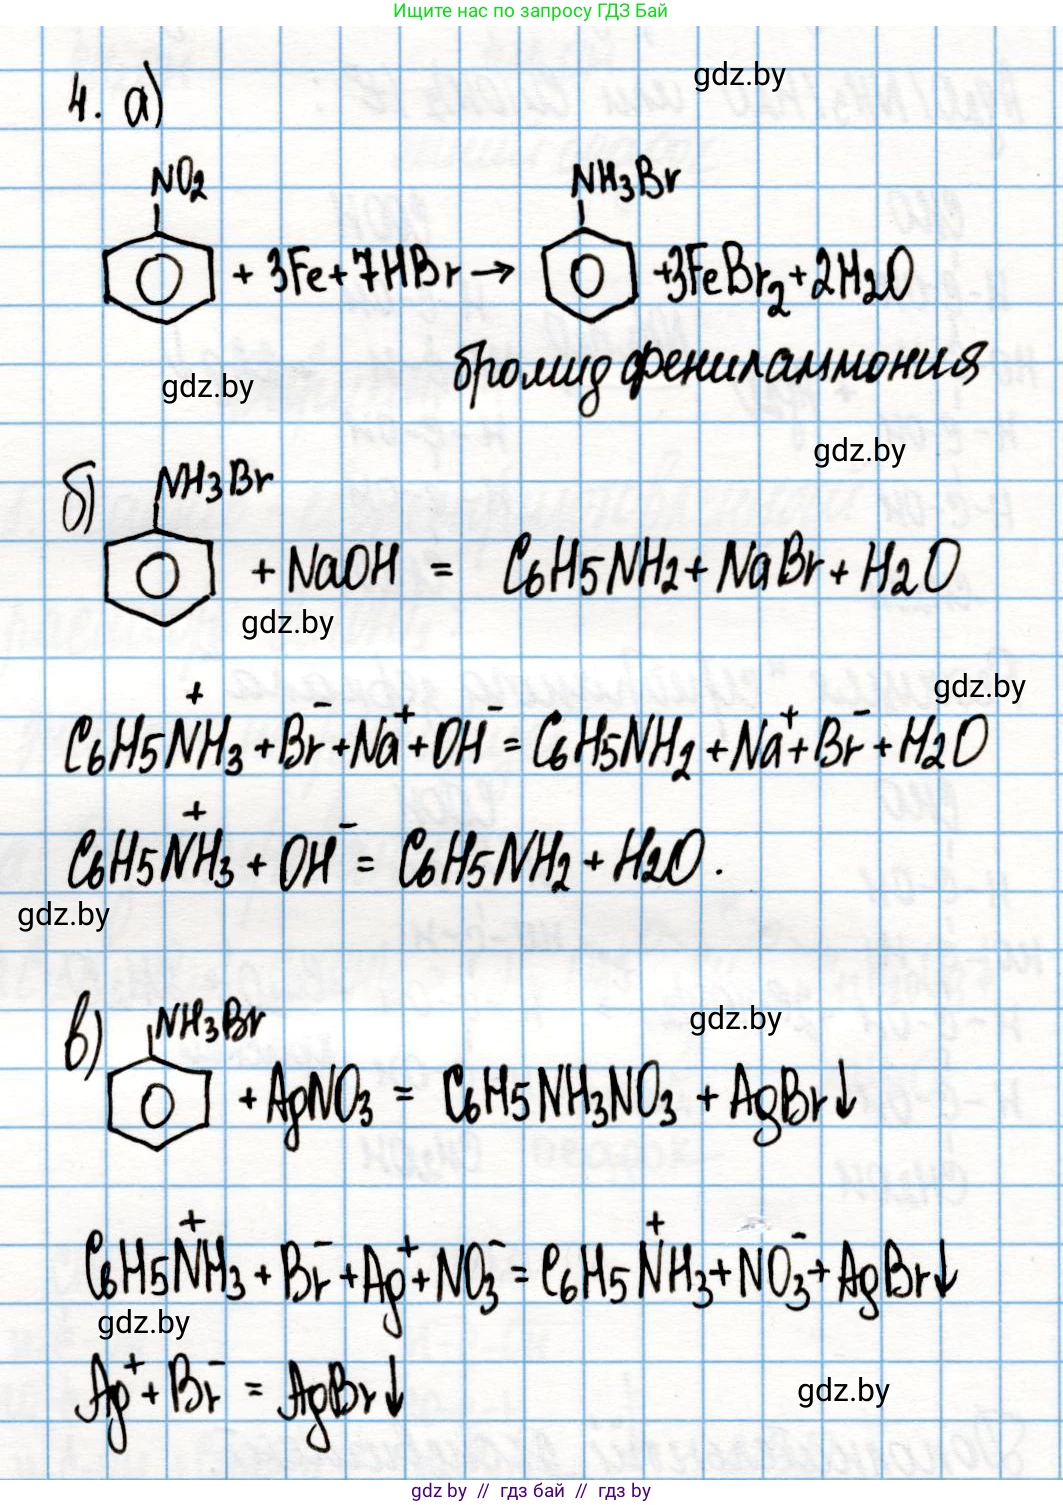 Ищите нас по запросу ГДЗ Бай
gdz.by
4. а)
NO2 NH3Br
+ 3Fe + 7HBr → +3FeBr2 + 2H2O
бромид фениламмония
gdz.by
gdz.by
б) NH3Br
+ NaOH = C6H5NH2 + NaBr + H2O
gdz.by
gdz.by
C6H5N⁺H3 + Br⁻ + Na⁺ + OH⁻ = C6H5NH2 + Na⁺ + Br⁻ + H2O
C6H5N⁺H3 + OH⁻ = C6H5NH2 + H2O.
gdz.by
в) NH3Br
gdz.by
+ AgNO3 = C6H5NH3NO3 + AgBr↓
C6H5N⁺H3 + Br⁻ + Ag⁺ + NO3⁻ = C6H5N⁺H3 + NO3⁻ + AgBr↓
gdz.by
Ag⁺ + Br⁻ = AgBr↓
gdz.by
gdz by // гдз бай // гдз by